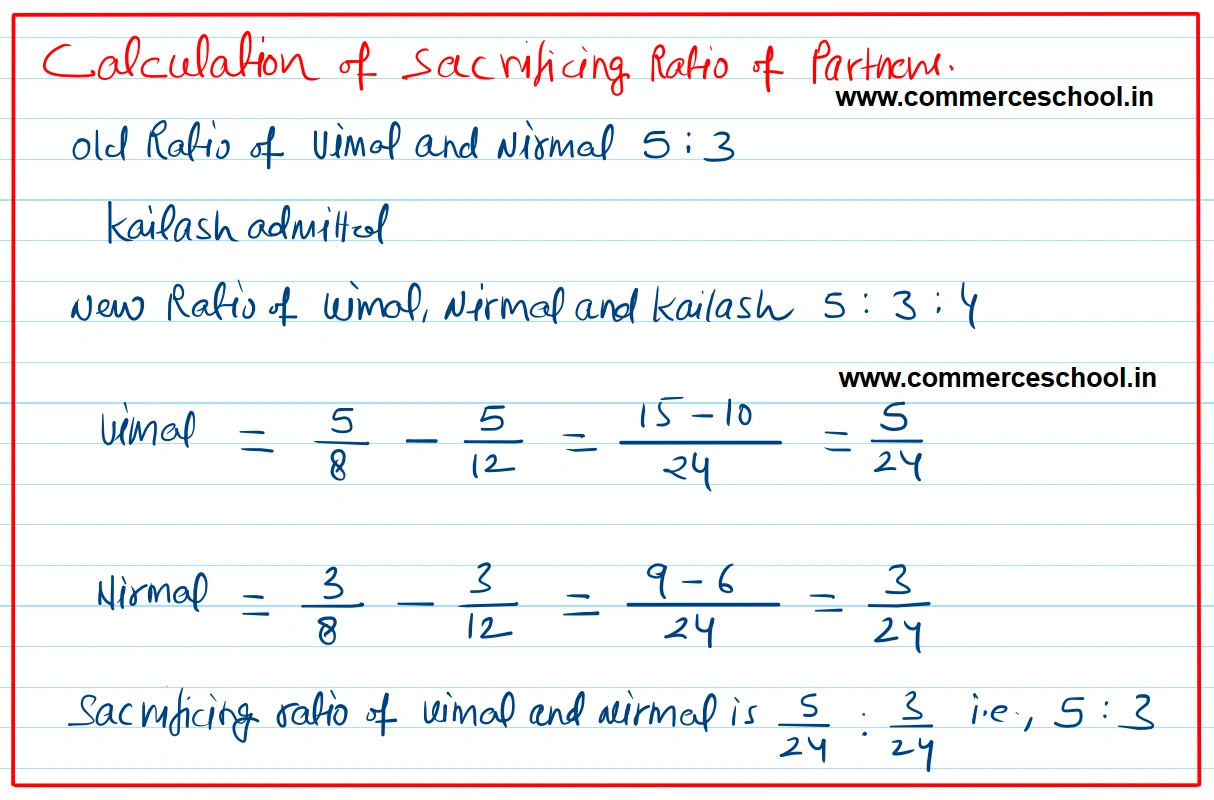 Calculation of Sacrificing Ratio of Partners.
www.commerceschool.in
Old Ratio of Vimal and Nirmal 5 : 3
Kailash admitted
New Ratio of Vimal, Nirmal and Kailash 5 : 3 : 4
www.commerceschool.in
Vimal = 5/8 - 5/12 = 15 - 10/24 = 5/24
Nirmal = 3/8 - 3/12 = 9 - 6/24 = 3/24
Sacrificing ratio of Vimal and Nirmal is 5/24 : 3/24 i.e., 5 : 3